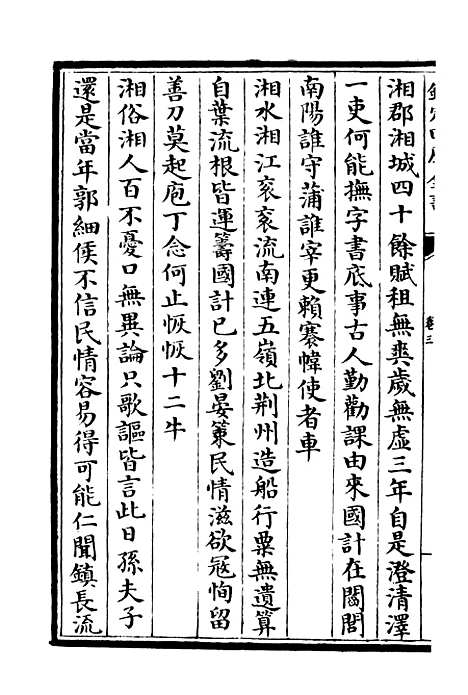 欽定四庫全書
卷三
湘郡湘城四十餘賦租無爽歲無虛三年自是澄清澤
一吏何能撫字書底事古人勤勸課由來國計在閭閻
南陽誰守蒲誰宰更賴褰幃使者車
湘水湘江衮衮流南連五嶺北荆州造船行粟無遺算
自葉流根皆運籌國計已多劉晏䇿民情滋欲冦恂留
善刀莫起庖丁念何止恢恢十二牛
湘俗湘人百不憂口無異論只歌謳皆言此日孫夫子
還是當年郭細侯不信民情容易得可能仁聞鎮長流